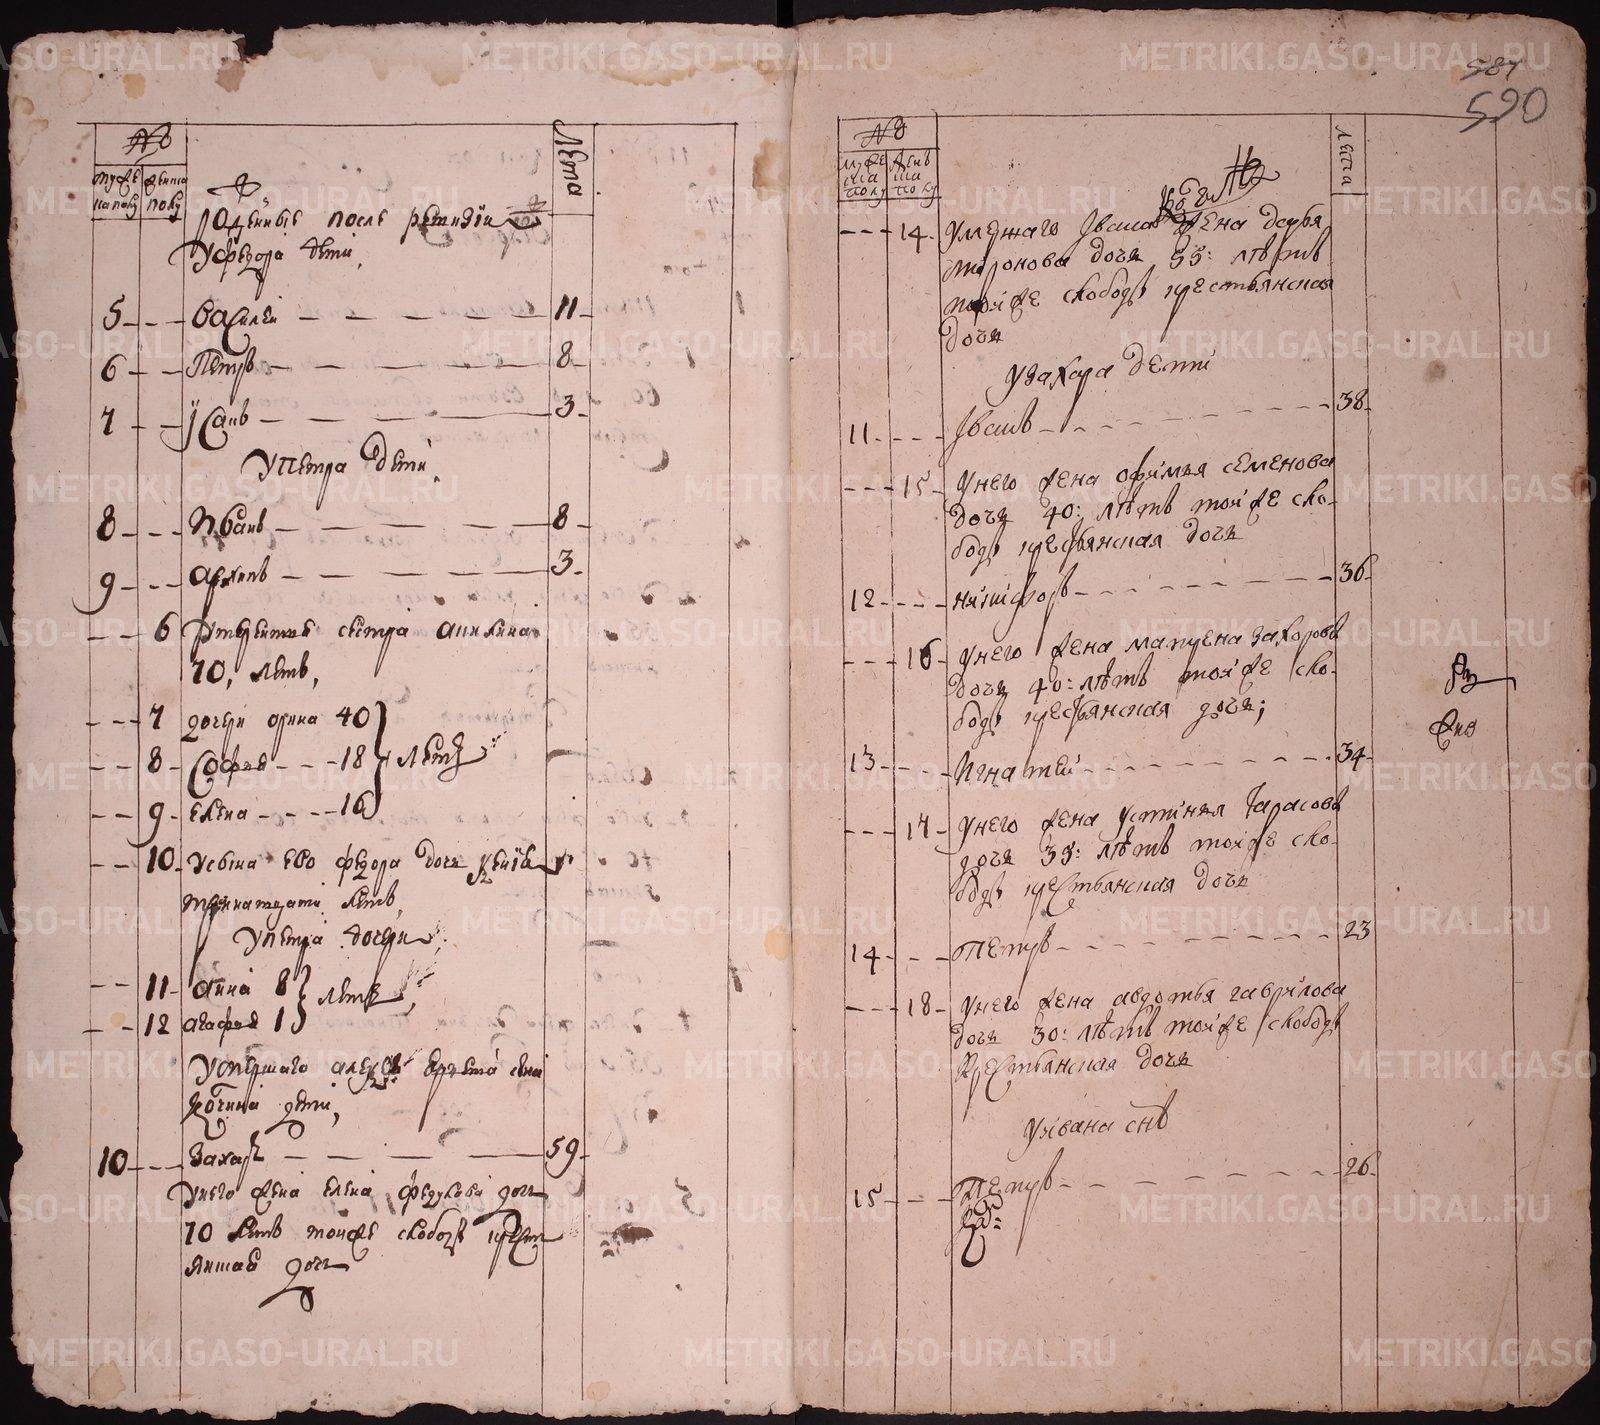 №
мужеска полу
женска полу
лета
рожденные после ревизiи
У Федора дети,
5 - - - Василеи - - - 11
6 - - - Петръ - - - 8
7 - - - Усанъ - - - 3
У Петра дети,
8 - - - Иванъ - - - 8
9 - - - Архипъ - - - 3
- - - 6 сестра
70, летъ,
- - - 7 дочери орина 40
- - 8 - Софья - - - 18 летъ
- - 9 - елена - - - 16
- - 10 - у сына ево федора дочь
тринатцати летъ,
У Петра дочери
- - 11 - анна 8 летъ
- - 12 агафья 1
У умершаго алексея сына
дети,
10 - - - Захаръ - - - 59
у него жена елена дочь
70 летъ тоиже слободы крест
янская дочь
587
590
№
мужеска полу
женска полу
лета
- - - 14 - умершаго Ивана жена Дарья
миронова дочь 55: лѣтъ
тояже слободы крестьянская
дочь
у Захара дети
11 - - - - Iванъ - - - 38
- - - 15 - у него жена офимья семенова
дочь 40: лѣтъ тояже сло-
боды крестьянская дочь
12 - - - - никифоръ - - - 36
- - - 16 - у него жена матрена Захарова
дочь 40: лѣтъ тояже сло-
боды крестьянская дочь;
13 - - - - Игнатеи - - - 34
- - - 17 - у него жена устинья Тарасова
дочь 35: лѣтъ тояже сло-
боды крестьянская дочь
14 - - - Петръ - - - 23
- - - 18 - у него жена авдотья гаврилова
дочь 30: лѣтъ тояже слободы
крестьянская дочь
у ивана снъ
15 - - - Петръ - - - 26
METRIKI.GASO-URAL.RU